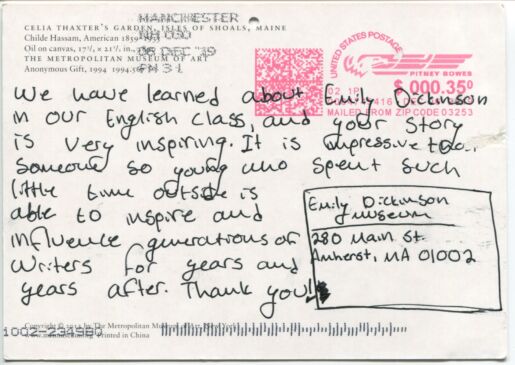 CELIA THAXTER'S GARDEN, ISLES OF SHOALS, MAINE
Childe Hassam, American 1859-1935
Oil on canvas, 17¾ x 21½ in.,
THE METROPOLITAN MUSEUM OF ART
Anonymous Gift, 1994 1994.567
MANCHESTER
NH 030
06 DEC '19
PM 3 1
UNITED STATES POSTAGE
PITNEY BOWES
02 1P
$ 000.35⁰
MAILED FROM ZIP CODE 03253
We have learned about Emily Dickinson
in our English class, and your story
is very inspiring. It is impressive
someone so young who spent such
little time outside is
able to inspire and
influence generations of
writers for years and
years after. Thank you!
Emily Dickinson
Museum
280 Main St.
Amherst, MA 01002
1002-234980
The Metropolitan Museum of Art, New York
Printed in China